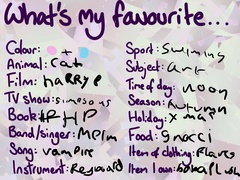 What's my favourite...
Colour: +
Animal: cat
Film: HARRY P
TV show: simpsons
Book: HP HJP
Band/singer: Melm
Song: vampire
Instrument: Keyboard
Sport: Swimins
Subject: art
Time of day: noon
Season: Autumn
Holiday: xmas
Food: gnocci
Item of clothing: Flares
Item I own: